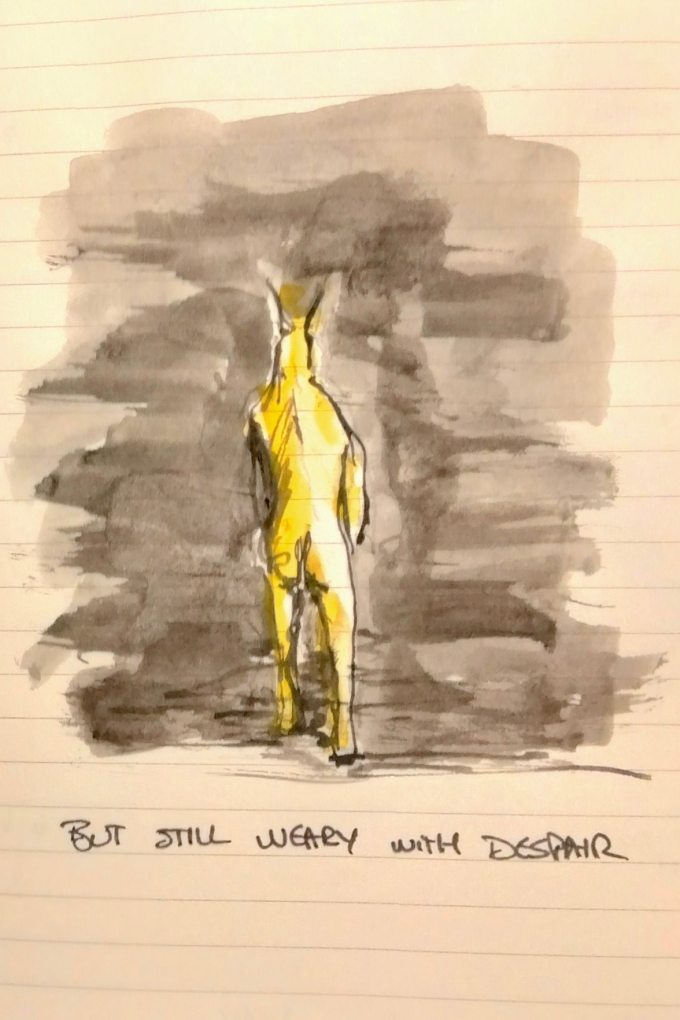 BUT STILL WEARY WITH DESPAIR